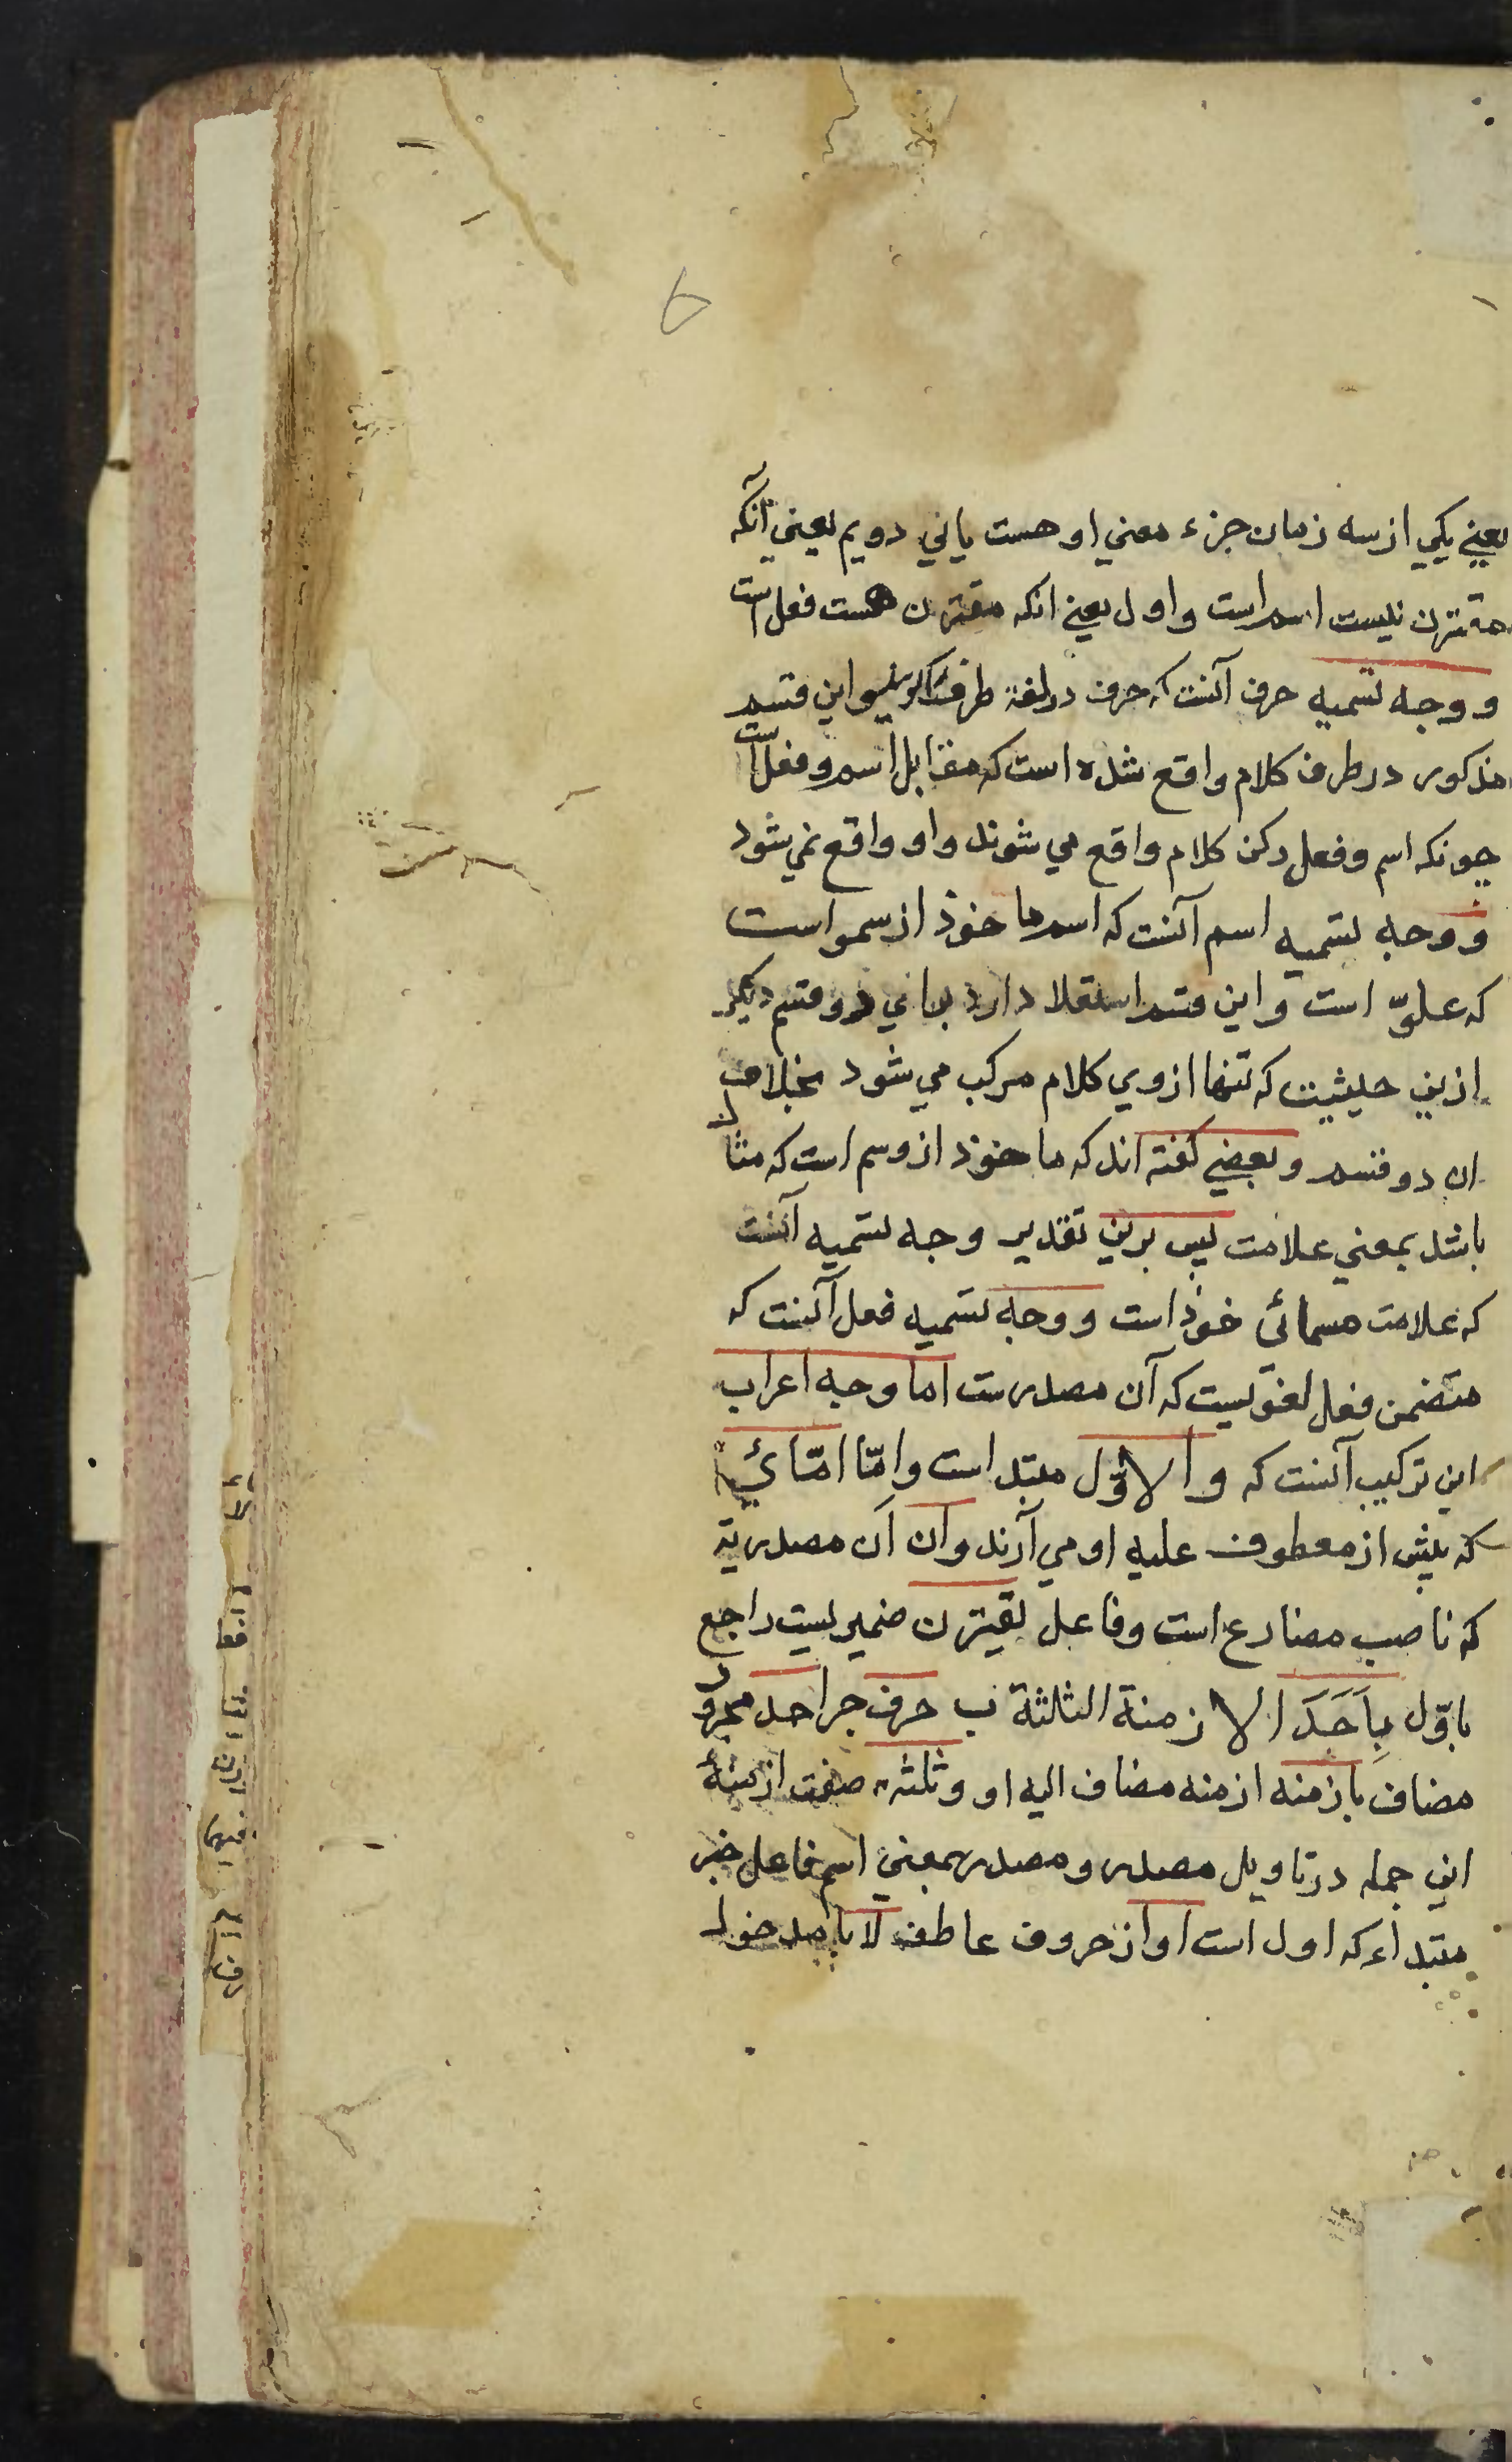 6
يعني يكي از سه زمان جزء معني او هست ياني دويم يعني آنكه
مقترن نيست اسم است واول يعني انكه مقترن هست فعل است
و وجه تسميه حرف آنست كه حرف در لغة طرف واين قسم
مذكور در طرف كلام واقع شده است كه مقابل اسم و فعل است
چونكه اسم وفعل ركن كلام واقع مي شوند واو واقع نمي شود
و وجه تسميه اسم آنست كه اسم ماخوذ از سمو است
كه علوّ است و اين قسم استعلا دارد بر دو قسم ديكر
ازين حيثيت كه تنها از وي كلام مركب مي شود بخلاف
ان دو قسم و بعضي كفته اند كه ماخوذ از وسم است كه مثال
باشد بمعني علامت پس برين تقدير وجه تسميه آنست
كه علامت مسمائ خوذ است و وجه تسميه فعل آنست كه
متضمن فعل لغويست كه آن مصدرست اما وجه اعراب
اين تركيب آنست كه و الاوّل مبتد است وامّا امّائي
كه پيش از معطوف عليه او مي آرند وان اَن مصدرية
كه ناصب مضارع است وفاعل يقترن ضميريست راجع
باوّل بِاَحَدَ الازمنة الثلثة ب حرف جر احد مجرور
مضاف بازمنه ازمنه مضاف اليه او وثلثه صفت ازمنهٔ
اين جمله در تاويل مصدر و مصدر بمعني اسم فاعل خبر
مبتداء كه اول است او از حروف عاطف لا با مدخول